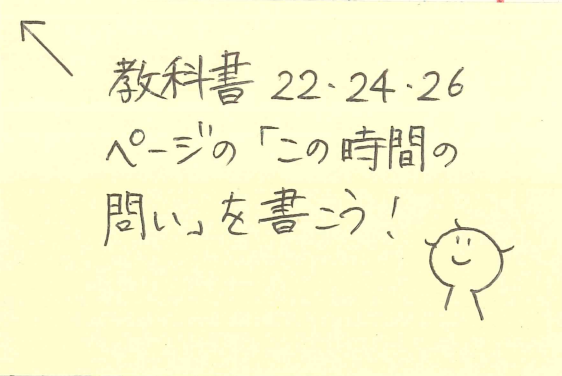 教科書 22・24・26
ページの「この時間の
問い」を書こう!